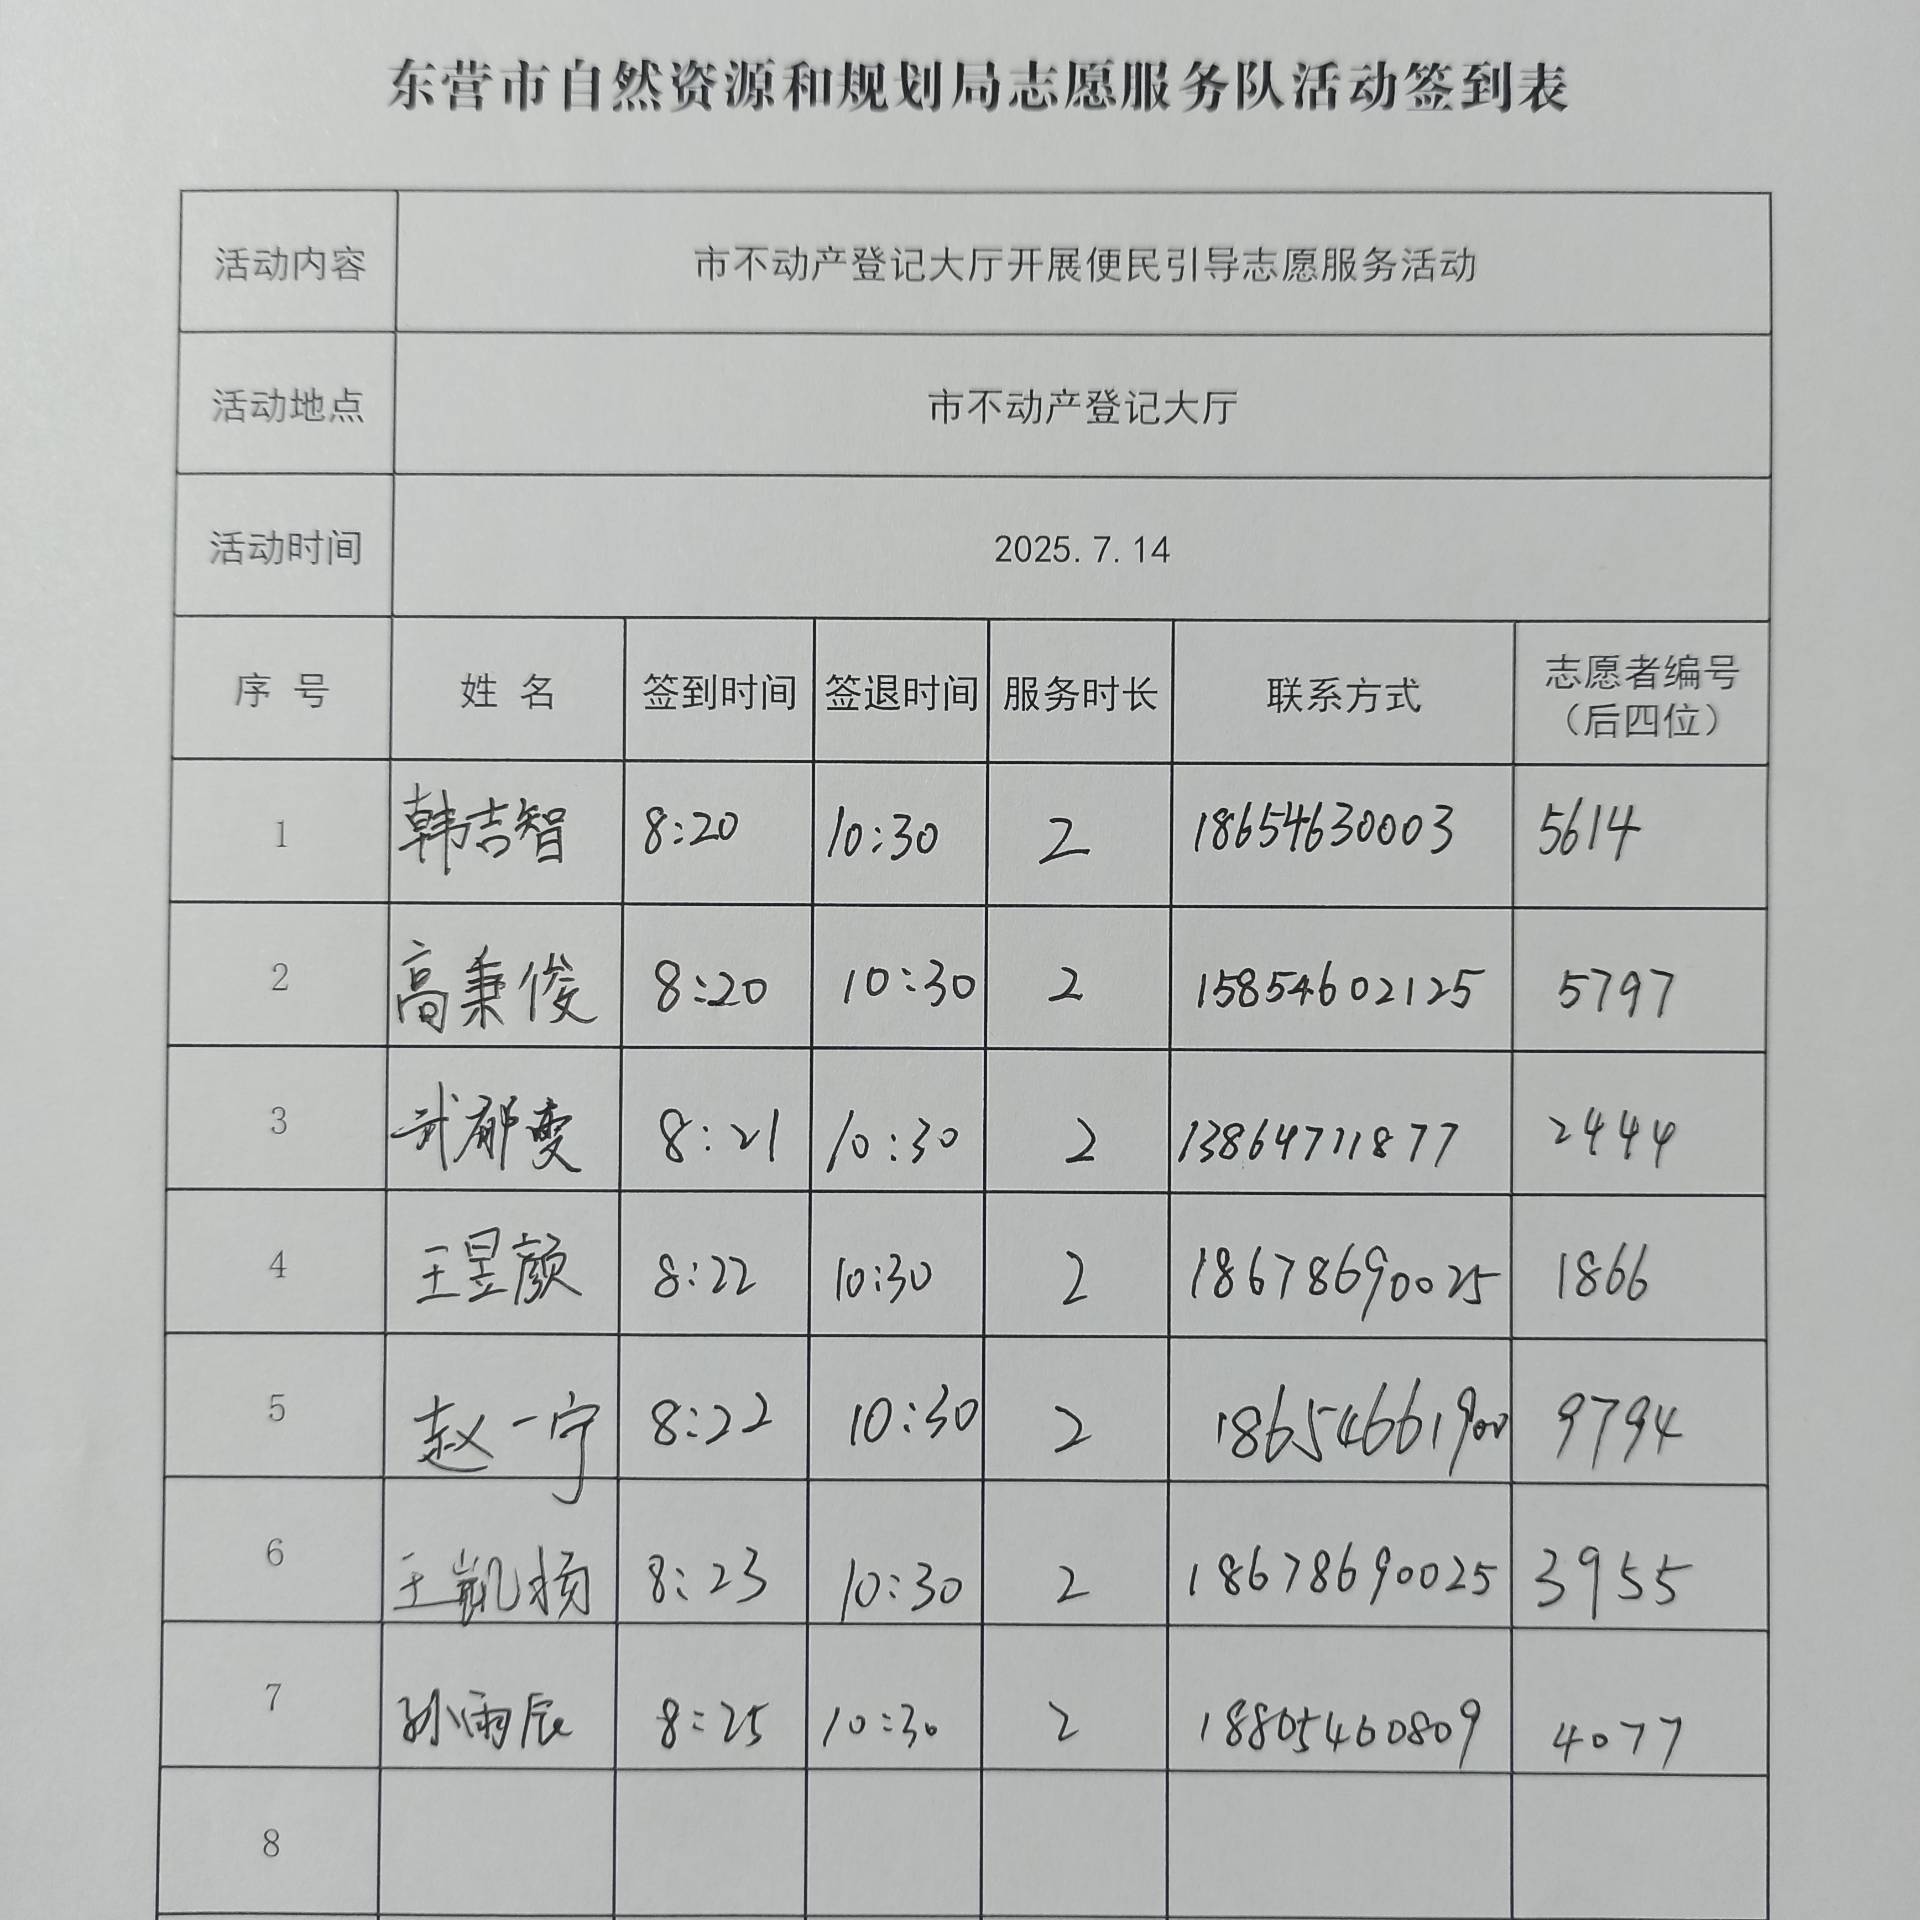 东营市自然资源和规划局志愿服务队活动签到表
活动内容 市不动产登记大厅开展便民引导志愿服务活动
活动地点 市不动产登记大厅
活动时间 2025.7.14
序号 姓名 签到时间 签退时间 服务时长 联系方式 志愿者编号
（后四位）
1 韩吉智 8:20 10:30 2 18654630003 5614
2 高秉俊 8:20 10:30 2 15854602125 5797
3 武郁雯 8:21 10:30 2 13864711877 2444
4 王昱颜 8:22 10:30 2 18678690025 1866
5 赵一宁 8:22 10:30 2 18654661900 9794
6 王凯扬 8:23 10:30 2 18678690025 3955
7 孙雨辰 8:25 10:30 2 18805460809 4077
8